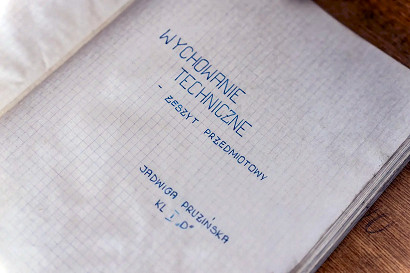 WYCHOWANIE
TECHNICZNE
- ZESZYT PRZEDMIOTOWY
JADWIGA PRUZIŃSKA
KL I „D"